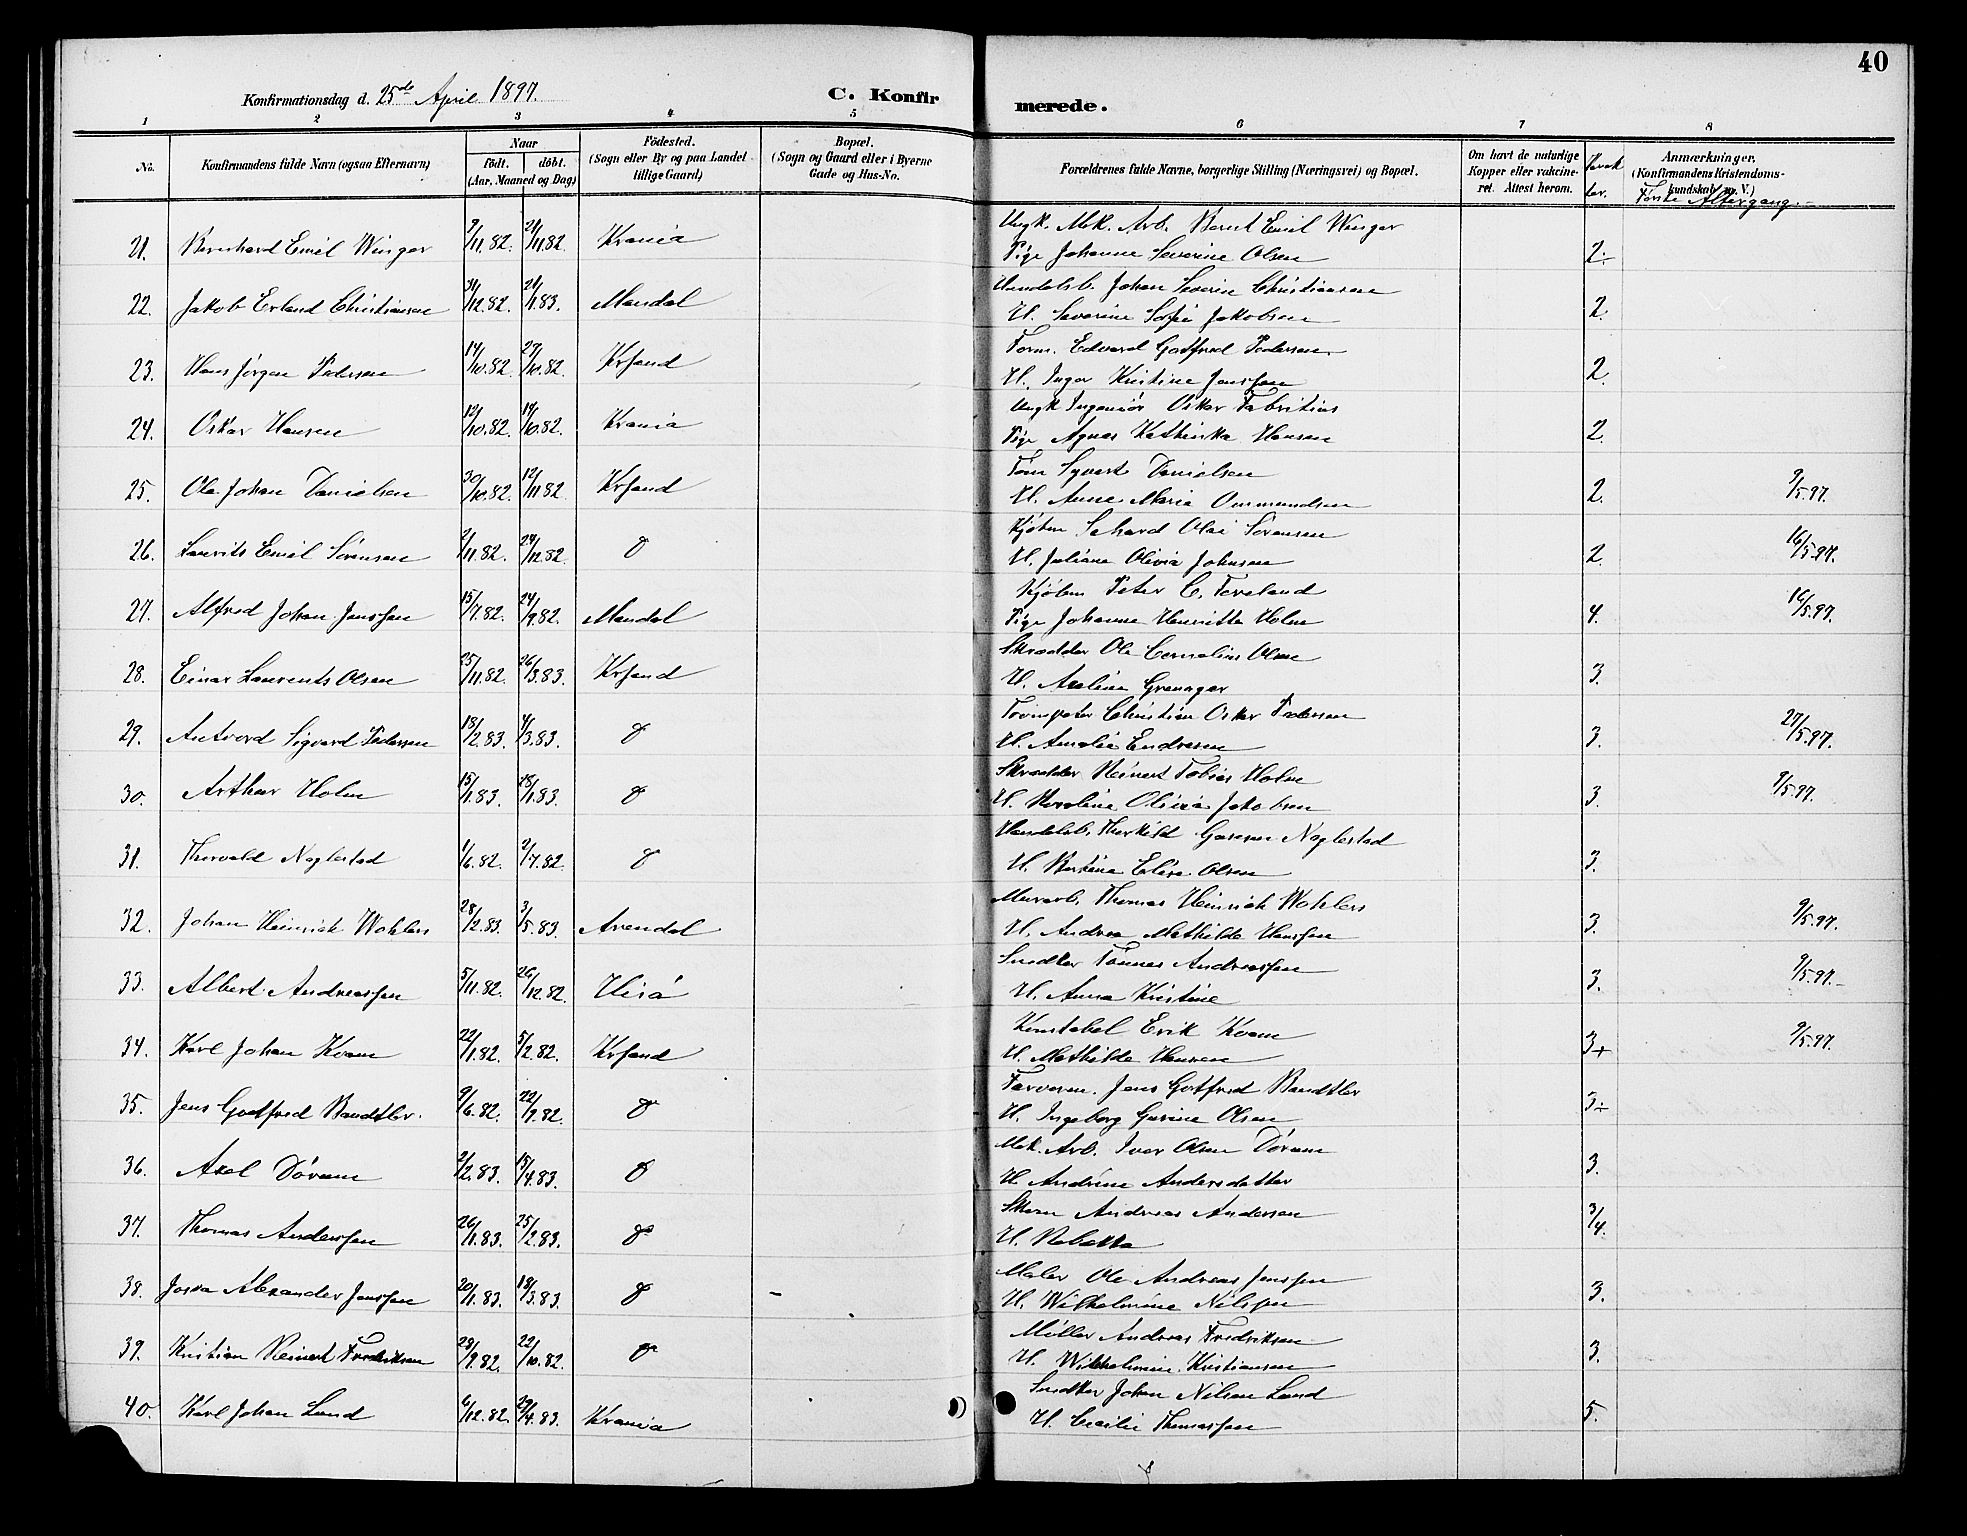 40
Konfirmationsdag d. 25de April 1897. C. Konfirmerede.
1 2 3 4 5 6 7 8
No. Konfirmandens fulde Navn (ogsaa Efternavn) Naar født. døbt. (Aar, Maaned og Dag) Fødested. (Sogn eller By og paa Landet tillige Gaard) Bopæl. (Sogn og Gaard eller i Byerne Gade og Hus-No. Forældrenes fulde Navne, borgerlige Stilling (Næringsvei) og Bopæl. Om havt de naturlige Kopper eller vakcineret. Attest herom. Karakter. Anmærkninger, (Konfirmandens Kristendomskundskab m. V.) Første Altergang.
21. Bernhard Emil Winger 7/11.82. 21/11.82. Krania Ungk. Mek. Arb. Bernt Emil Winger
Pige Johanne Severine Olsen 2÷
22. Jakob Erland Christiansen 31/12.82. 21/1.83. Mandal Handelsb. Johan Severin Christiansen
H. Severine Sofie Jakobsen 2.
23. Hans Jørgen Pedersen 14/10.82. 27/10.82. Krsand Form. Edvard Gotfred Pedersen
H. Inger Kristine Jenssen 2.
24. Oskar Hansen 12/10.82. 19/10.82. Krania Ungk Ingeniør Oskar Fabritius
Pige Agnes Kathinka Hansen 2.
25. Ole Johan Danielsen 30/10.82. 12/11.82 Krsand Tøm Syvert Danielsen
H. Anne Maria Ommundsen 2. 9/5.97.
26. Laurits Emil Sørensen 2/11.82. 29/12.82. d Kjøbm Olai Sørensen
H. Juliane Olivia Johnsen 2. 16/5.97.
27. Alfred Johan Jenssen 15/7.82. 24/9.82. Mandal Kjøbm Peter C. Foreland
Pige Johanne Henriette Holm 4. 16/5.97.
28. Einar Laurents Olsen 25/11.82. 26/3.83. Krsand Skrædder Ole Cornelius Olsen
H. Axeline Grennger 3.
29. Antvord Sigvard Pedersen 18/2.83. 4/3.83. d Christian Oskar Pedersen
H. Amalie Endresen 3. 27/5.97.
30. Arthur Holm 15/1.83. 28/1.83. d Skrædder Reinert Tobias Holm
H. Karoline Olivia Jakobsen 3. 9/5.97.
31. Thorvald Noglestad 1/6.82. 2/7.82. d Handelsb. Therkild Noglestad
H. Bertine Elise Olsen 3.
32. Johan Heinrich Wohlers 28/2.83. 3/5.83. Arendal Murarb. Thomas Heinrich Wohlers
H. Andrea Mathilde Hanssen 3. 9/5.97.
33. Albert Andreassen 5/11.82. 26/12.82. Hisø Snedker Tønnes Andreassen
H. Anna Kristine 3. 9/5.97.
34. Karl Johan Kvam 22/1.82. 5/2.82. Krsand Konstabel Erik Kvam
H. Mathilde Hansen 3+ 9/5.97.
35. Jens Gotfred Bandtler. 9/6.82. 22/7.82. d Farversv. Jens Gotfred Bandtler
H. Ingeborg Gurine Olsen 3÷
36. Axel Dørum 2/2.83. 15/4.83. d Mek. Arb. Iver Olsen Dørum
H. Andrine Andersdatter 3.
37. Thomas Anderssen 26/1.83. 25/2.83. d Skom Andreas Andersen
H. Rebekka 3/4.
38. Josva Alexander Jenssen 20/1.83. 18/3.83. d Maler Ole Andreas Jenssen
H. Wilhelmine Nilssen 3.
39. Kristian Reinert Fredriksen 29/9.82. 22/10.82. d Møller Andreas Fredriksen
H. Wilhelmine Kristiansen 3.
40. Karl Johan Lund 6/12.82. 29/4.83. Krania Snedker Johan Nilsen Lund
H. Cecilie Thomassen 5.